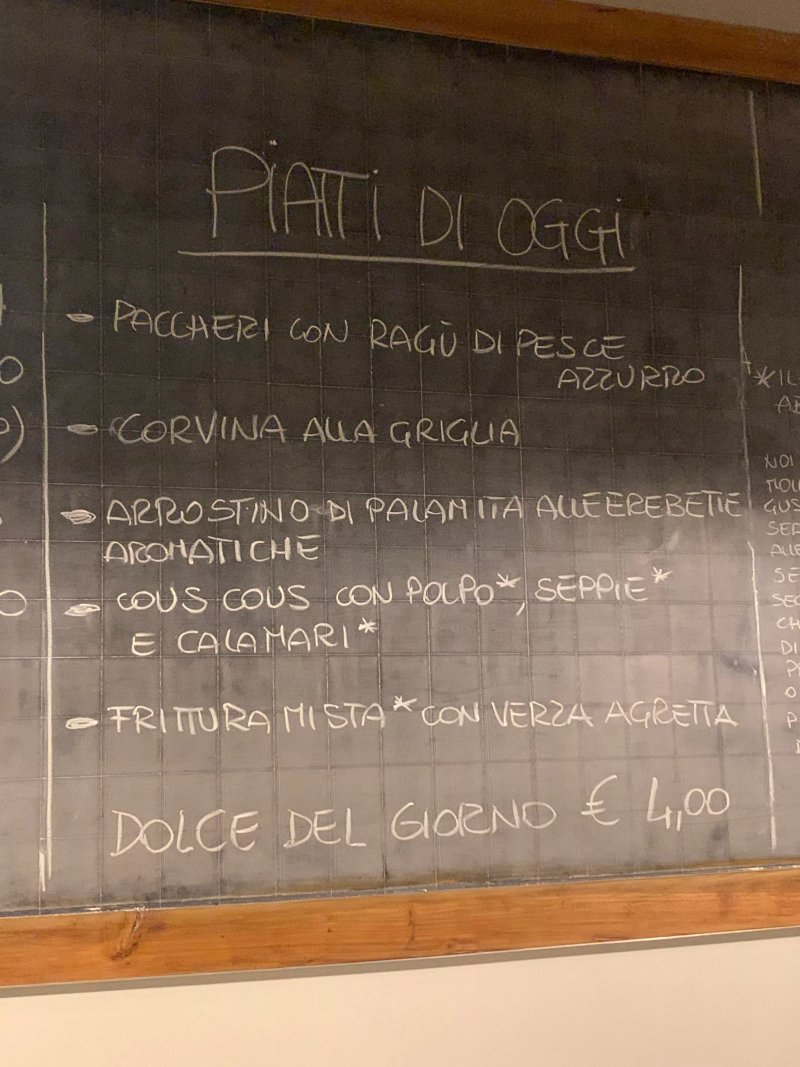 PIATTI DI OGGI
- PACCHERI CON RAGÙ DI PESCE
AZZURRO
- CORVINA ALLA GRIGLIA
- ARROSTINO DI PALAMITA ALLE EREBETTE
AROMATICHE
- COUS COUS CON POLPO*, SEPPIE*
E CALAMARI*
- FRITTURA MISTA* CON VERZA AGRETTA
DOLCE DEL GIORNO € 4,00
*IL
NOI